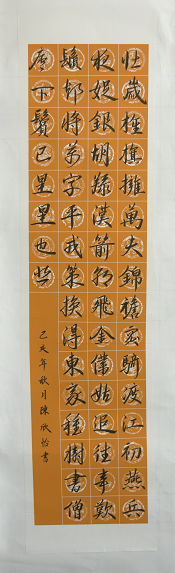 壯歲旌旗擁萬夫錦襜突騎渡江初燕兵
夜娖銀胡觮漢箭朝飛金僕姑追往事歎
鬚卻將萬字平戎策換得東家種樹書僧
廬下鬢已星星也悲
己亥年秋月陳欣怡書